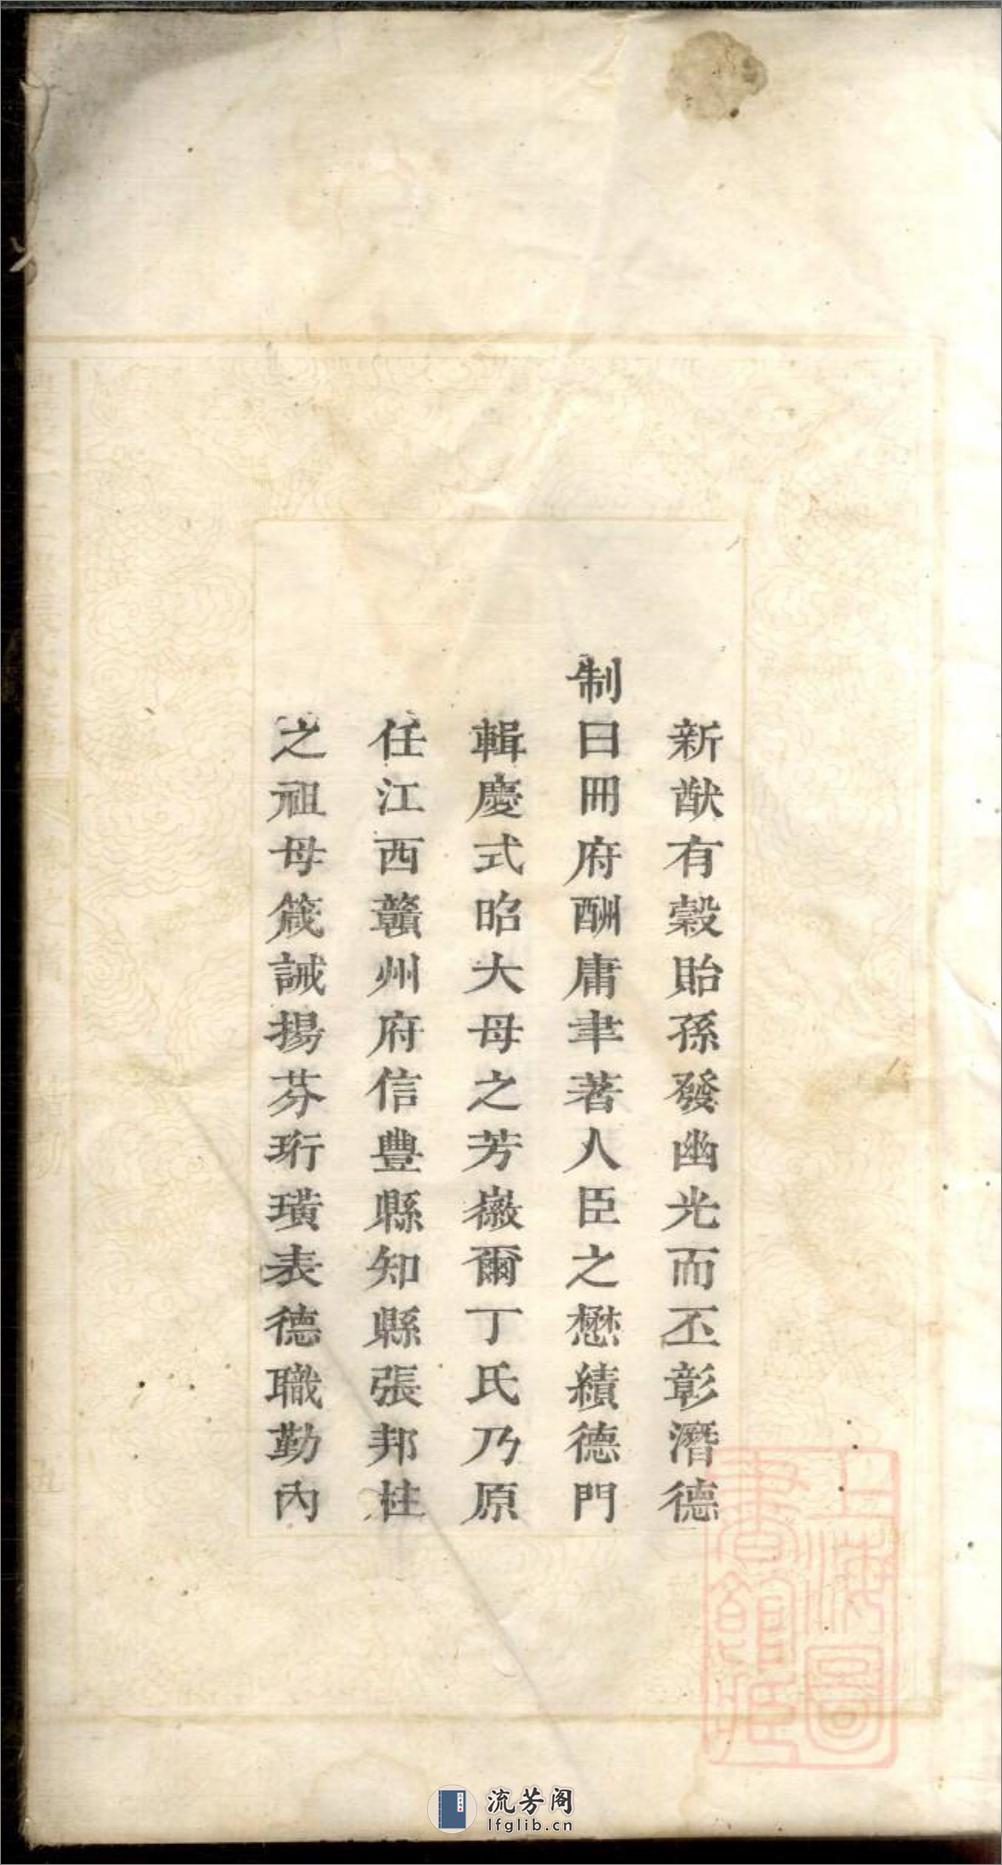 新猷有穀貽孫發幽光而丕彰潛德
制曰冊府酬庸聿著人臣之懋績德門
輯慶式昭大母之芳徽爾丁氏乃原
任江西贛州府信豐縣知縣張邦柱
之祖母箴誡揚芬珩璜表德職勤內
上海圖
書館藏
流芳阁
lfglib.cn